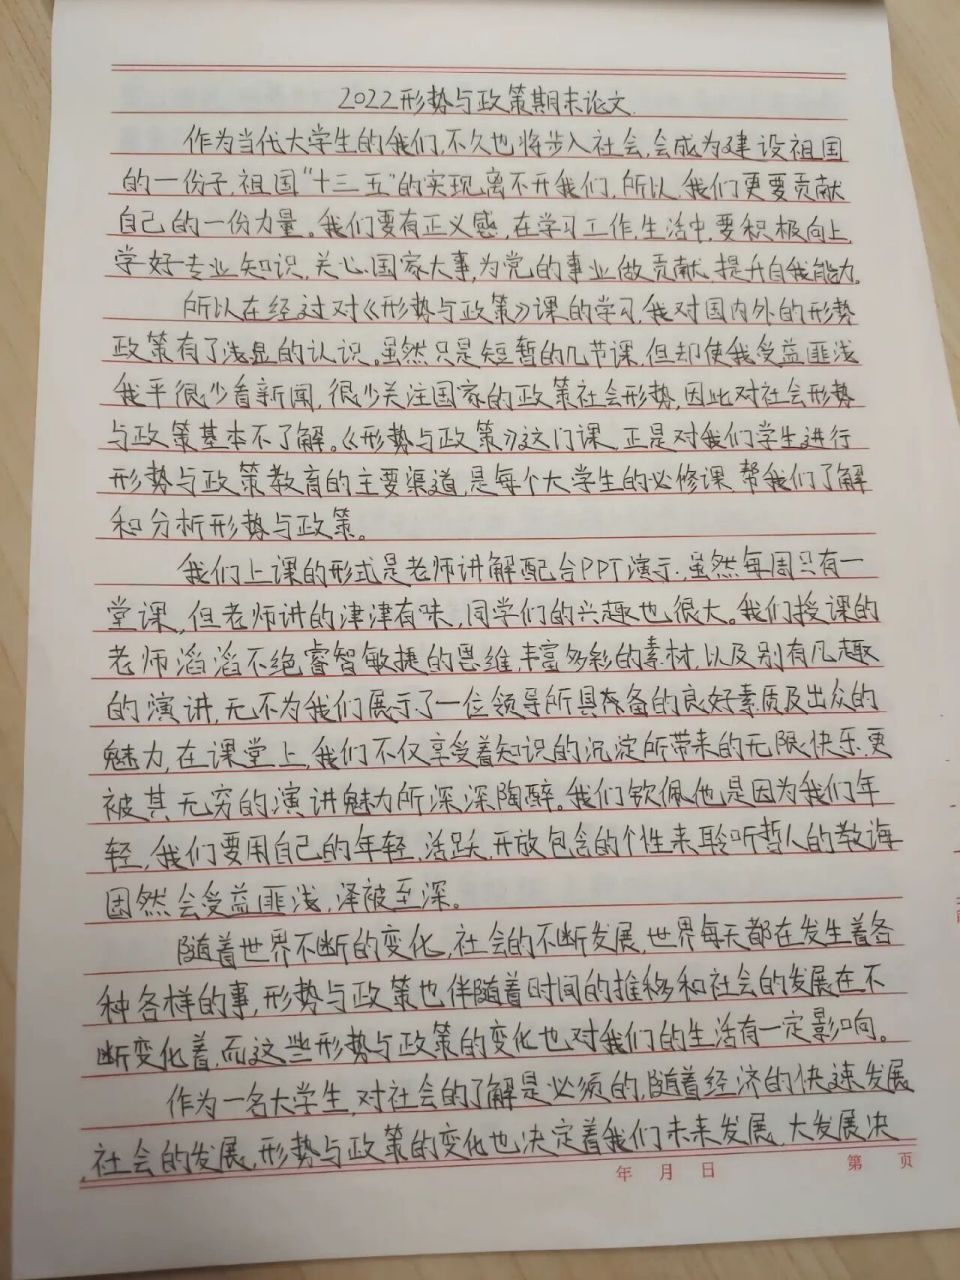 2022形势与政策期末论文.
作为当代大学生的我们,不久也将步入社会,会成为建设祖国
的一份子,祖国"十三五"的实现离不开我们,所以,我们更要贡献
自己的一份力量。我们要有正义感,在学习工作,生活中,要积极向上,
学好专业知识,关心国家大事,为党的事业做贡献,提升自我能力。
所以在经过对《形势与政策》课的学习,我对国内外的形势
政策有了浅显的认识。虽然只是短暂的几节课,但却使我受益匪浅
我平很少看新闻,很少关注国家的政策社会形势,因此对社会形势
与政策基本不了解。《形势与政策》这门课,正是对我们学生进行
形势与政策教育的主要渠道,是每个大学生的必修课,帮我们了解
和分析形势与政策。
我们上课的形式是老师讲解配合PPT演示,虽然每周只有一
堂课,但老师讲的津津有味,同学们的兴趣也很大。我们授课的
老师滔滔不绝睿智敏捷的思维,丰富多彩的素材,以及别有凡趣
的演讲,无不为我们展示了一位领导所具备的良好素质及出众的
魅力,在课堂上,我们不仅享受着知识的沉淀所带来的无限快乐,更
被其无穷的演讲魅力所深深陶醉。我们钦佩他是因为我们年
轻,我们要用自己的年轻,活跃,开放包含的个性来聆听哲人的教诲
固然会受益匪浅,泽被至深。
随着世界不断的变化,社会的不断发展,世界每天都在发生着各
种各样的事,形势与政策也伴随着时间的推移和社会的发展在不
断变化着,而这些形势与政策的变化也对我们的生活有一定影响。
作为一名大学生,对社会的了解是必须的,随着经济的快速发展
,社会的发展,形势与政策的变化也决定着我们未来发展,大发展决
年 月 日 第 页